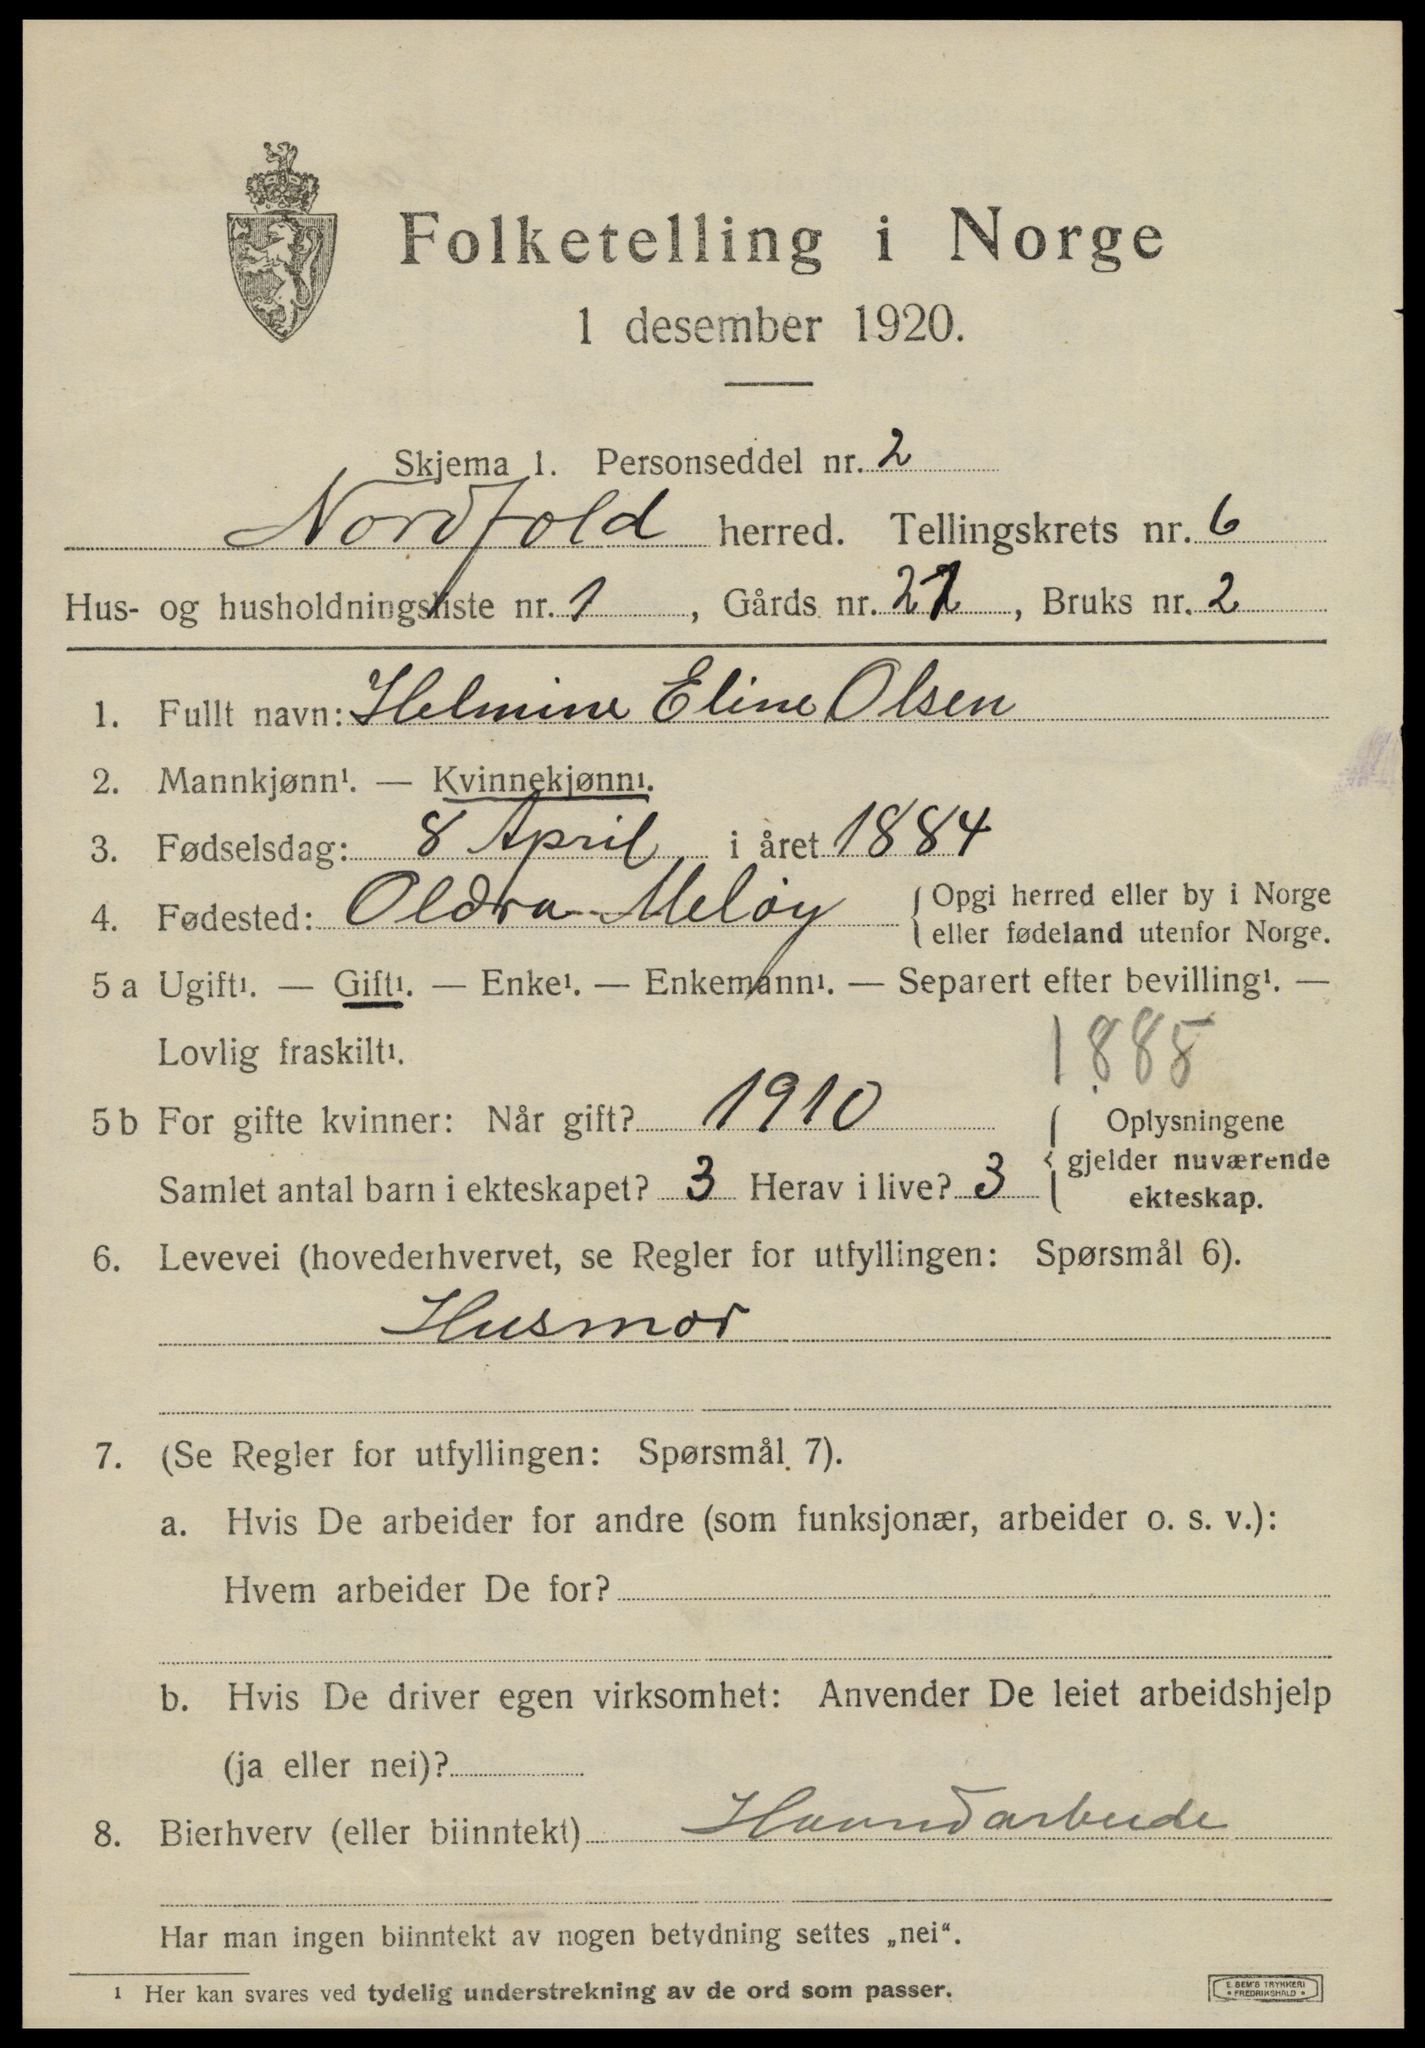 Folketelling i Norge
1 desember 1920.
Skjema 1. Personseddel nr. 2
Nordfold herred. Tellingskrets nr. 6
Hus- og husholdningsliste nr. 1, Gårds nr. 21, Bruks nr. 2
1. Fullt navn: Helmine Eline Olsen
2. Mannkjønn¹. — Kvinnekjønn¹.
3. Fødselsdag: 8 April i året 1884
4. Fødested: Oldra Meløy {Opgi herred eller by i Norge
eller fødeland utenfor Norge.
5 a Ugift¹. — Gift¹. — Enke¹. — Enkemann¹. — Separert efter bevilling¹. —
Lovlig fraskilt¹.
1885
5 b For gifte kvinner: Når gift? 1910
Samlet antal barn i ekteskapet? 3 Herav i live? 3
{Oplysningene
gjelder nuværende
ekteskap.
6. Levevei (hovederhvervet, se Regler for utfyllingen: Spørsmål 6).
Husmor
7. (Se Regler for utfyllingen: Spørsmål 7).
a. Hvis De arbeider for andre (som funksjonær, arbeider o. s. v.):
Hvem arbeider De for?
b. Hvis De driver egen virksomhet: Anvender De leiet arbeidshjelp
(ja eller nei)?
8. Bierhverv (eller biinntekt) Haandarbeide
Har man ingen biinntekt av nogen betydning settes „nei“.
¹ Her kan svares ved tydelig understrekning av de ord som passer.
E. SEM'S TRYKKERI
FREDRIKSHALD